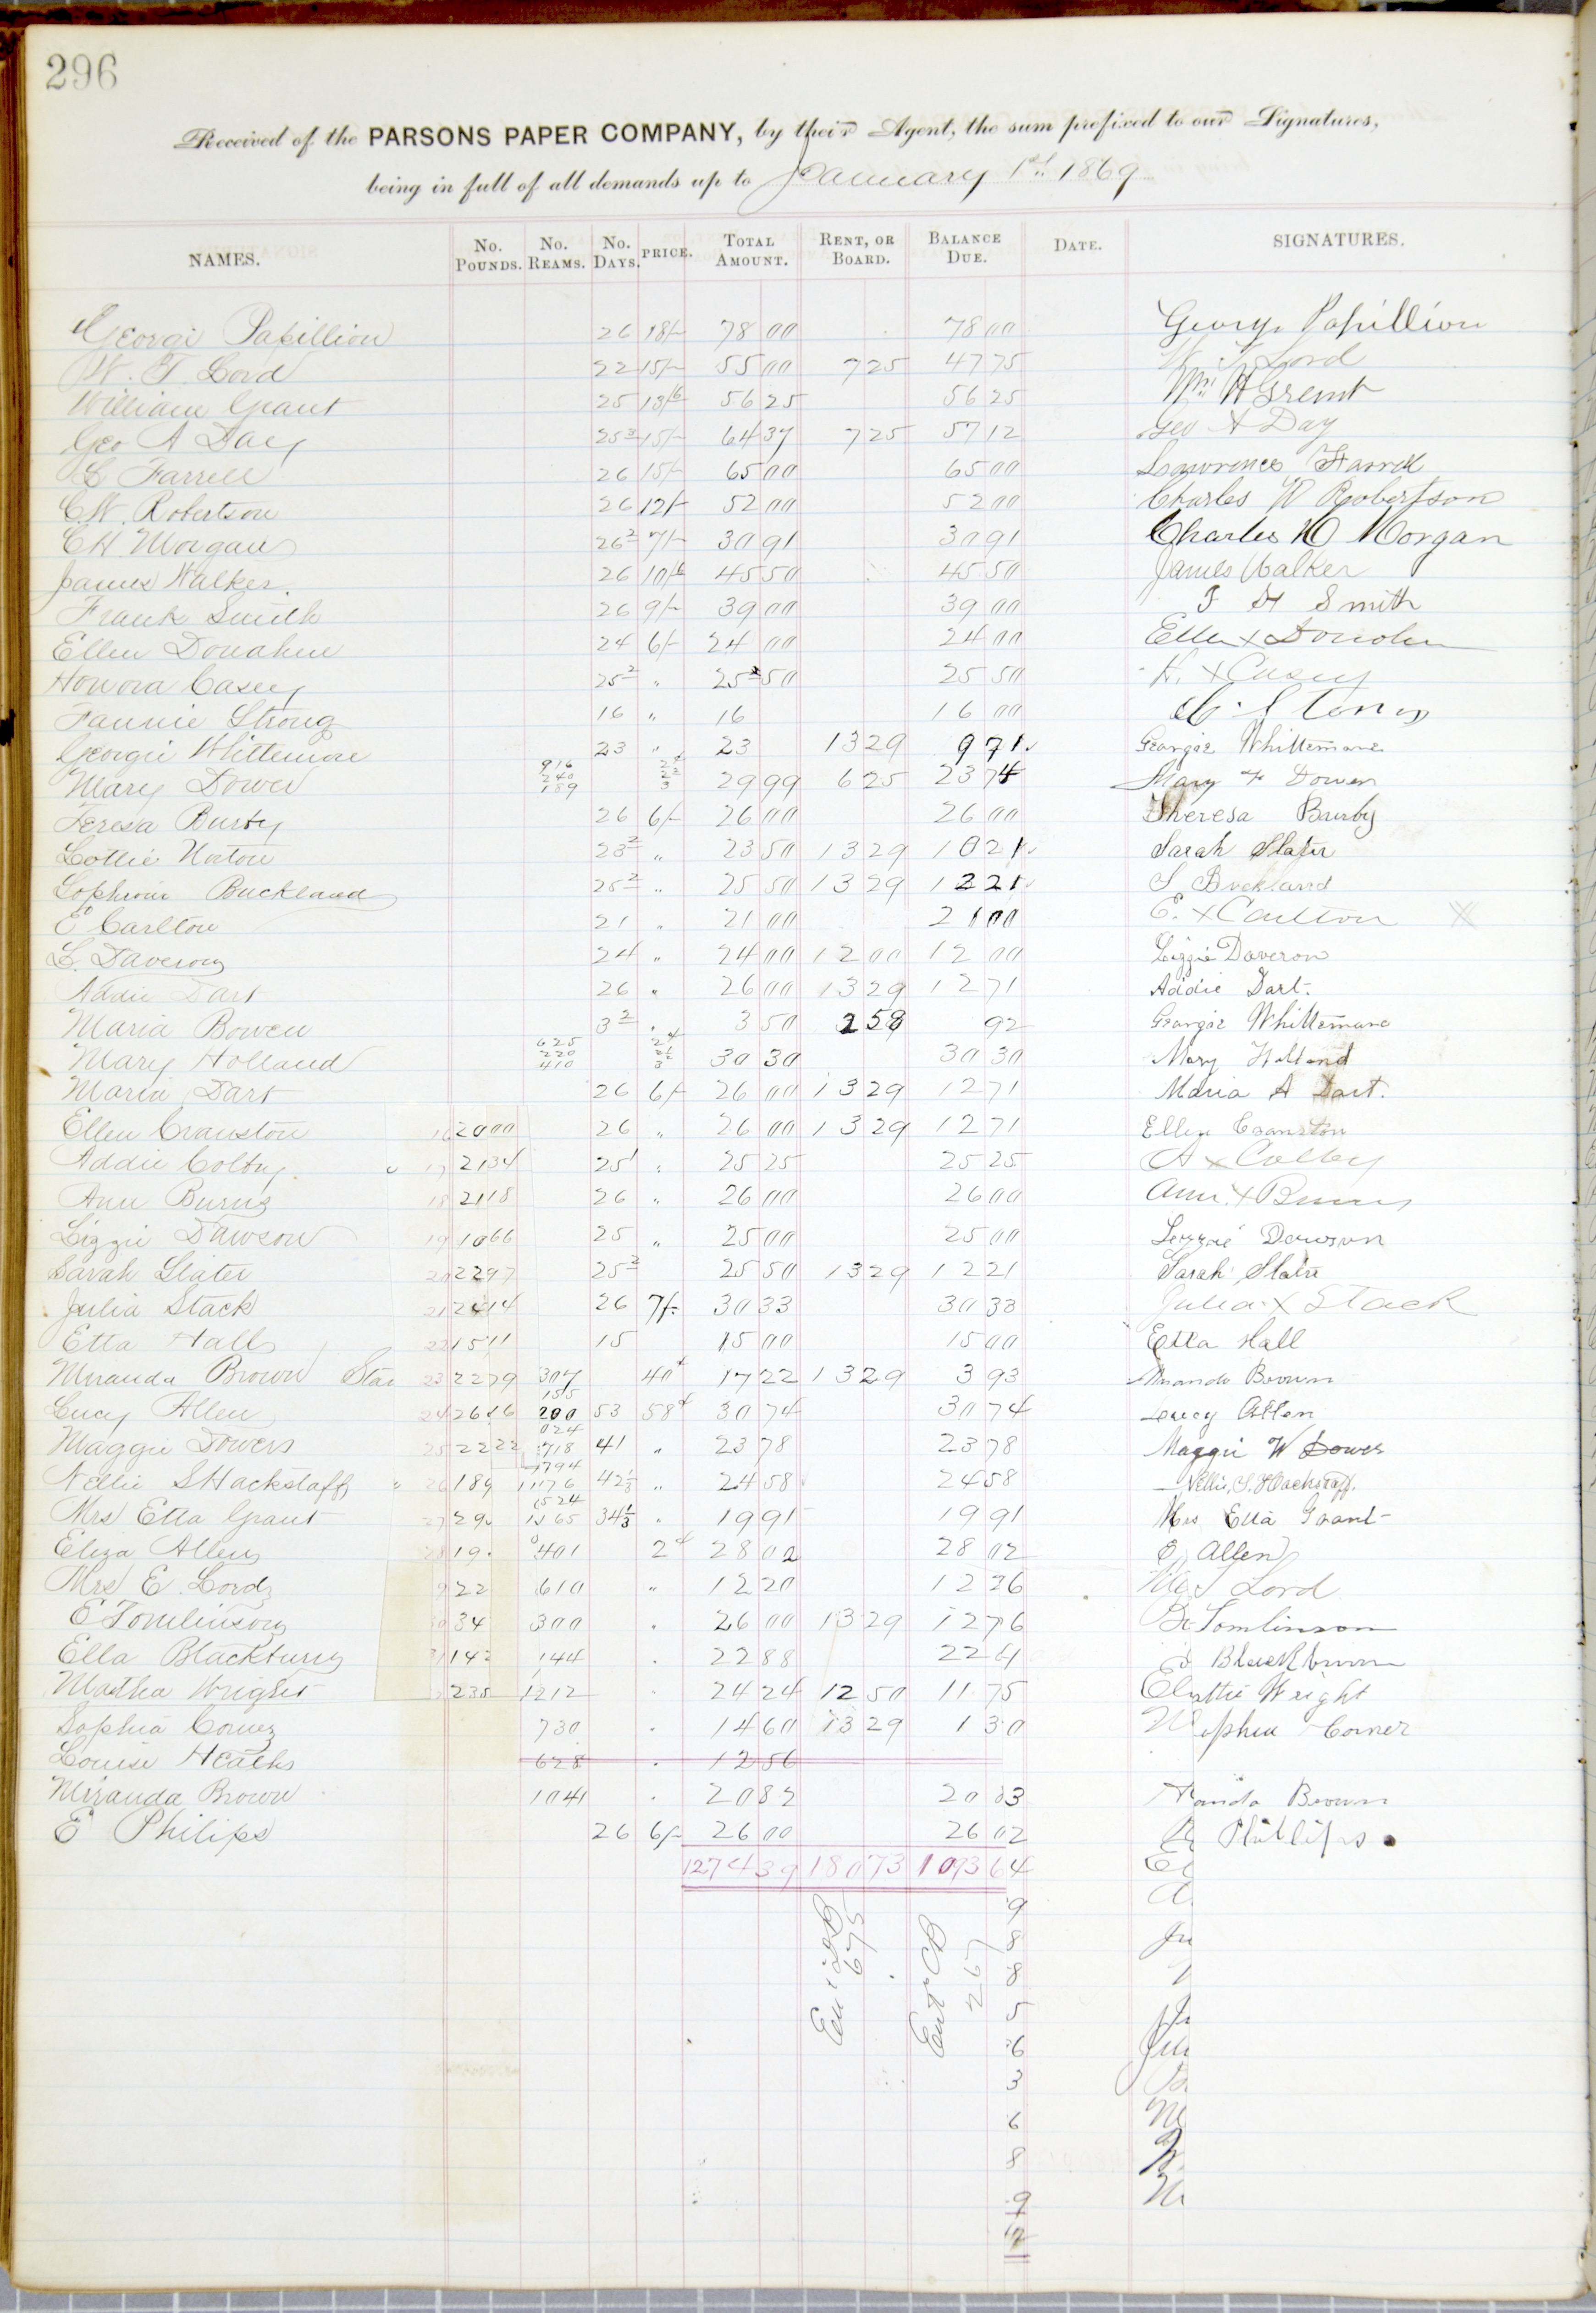 296
Received of the PARSONS PAPER COMPANY, by their Agent, the sum prefixed to our Signatures,
being in full of all demands up to January 1st 1869
NAMES. No. Pounds. No. Reams. No. Days. PRICE. Total Amount. Rent, or Board. Balance Due. Date. SIGNATURES.
George Papillion 26 18/- 78 00 78 00 George Papillion
W. T. Lord 22 15/- 55 00 7 25 47 75 Lord
William Grant 25 13/6 56 25 56 25 Wm H Grant
Geo A Day 25 3 15/- 64 37 7 25 57 12 Geo A Day
L Farrell 26 15/- 65 00 65 00 Lawrence Farrell
C.W. Robertson 26 12/- 52 00 52 00 Charles W Robertson
C H Morgan 26 2 7/- 30 91 30 91 Charles H Morgan
James Walker. 26 10/6 45 50 45 50 James Walker
Frank Smith 26 9/- 39 00 39 00 F H Smith
Ellen Donahue 24 6/- 24 00 24 00 Ellen x
Honora Casey 25 2 " 25 50 25 50 H. x Casey
Fannie Strong 16 " 16 16 00
Georgie Whittemore 23 " 23 13 29 9 71 Georgie Whittemore
Mary Dower 916 240 189 29 99 6 25 23 74 Mary Dower
Teresa Burby 26 6/- 26 00 26 00 Theresa Burby
Lottie Norton 23 2 " 23 50 13 29 10 21 Sarah Slater
Sophronia Buckland 25 2 " 25 50 13 29 12 21 S Buckland
E Carlton 21 " 21 00 21 00 E. x Carlton
L. Daveron 24 " 24 00 12 00 12 00 Lizzie Daveron
Addie Dart 26 " 26 00 13 29 12 71 Addie Dart.
Maria Bowen 3 2 " 3 50 2 58 92 Georgie Whittemore
Mary Holland 625 220 410 30 30 30 30 Mary Holland
Maria Dart 26 6/- 26 00 13 29 12 71 Maria A Dart.
Ellen Cranston 16 2000 26 " 26 00 13 29 12 71 Ellen Cranston
Addie Colby 17 2134 25 1 " 25 25 25 25 A x Colby
Ann Burns 18 2118 26 " 26 00 26 00 Ann x Burns
Lizzie Dawson 19 1066 25 " 25 00 25 00 Lizzie Dawson
Sarah Slater 20 2297 25 2 25 50 13 29 12 21 Sarah Slater
Julia Stack 21 2414 26 7/- 30 33 30 33 Julia x Stack
Etta Hall 22 15 15 00 15 00 Etta Hall
Miranda Brown 23 2279 307 40 17 22 13 29 3 93 Miranda Brown
Lucy Allen 24 155 200 53 58 30 74 30 74 Lucy Allen
Maggie Dowers 25 2222 718 41 " 23 78 23 78 Maggie W Dower
Nellie S Hackstaff 26 189 1176 42 1/3 " 24 58 24 58 Nellie S. Hackstaff.
Mrs Etta Grant 27 29 34 1/3 " 19 91 19 91 Mrs Etta Grant
Eliza Allen 28 19 401 2 28 02 28 02 E Allen
Mrs E. Lord 22 610 " 12 20 12 26 Lord
E Tomlinson 34 300 . 26 00 13 29 12 76 Tomlinson
Ella Blackburn 142 144 . 22 88 22 61 Blackburn
Martha Wright 235 1212 . 24 24 12 50 11 75 Wright
Sophia Corner 730 . 14 60 13 29 1 30 Corner
Louise Heath 628 . 12 56
Miranda Brown 1041 . 20 82 20 83 Brown
E Philips 26 6/- 26 00 26 02 Phillips
1274 39 180 73 1093 64
9
8
8
5
6
3
6
8
9
Ent CB
267
675